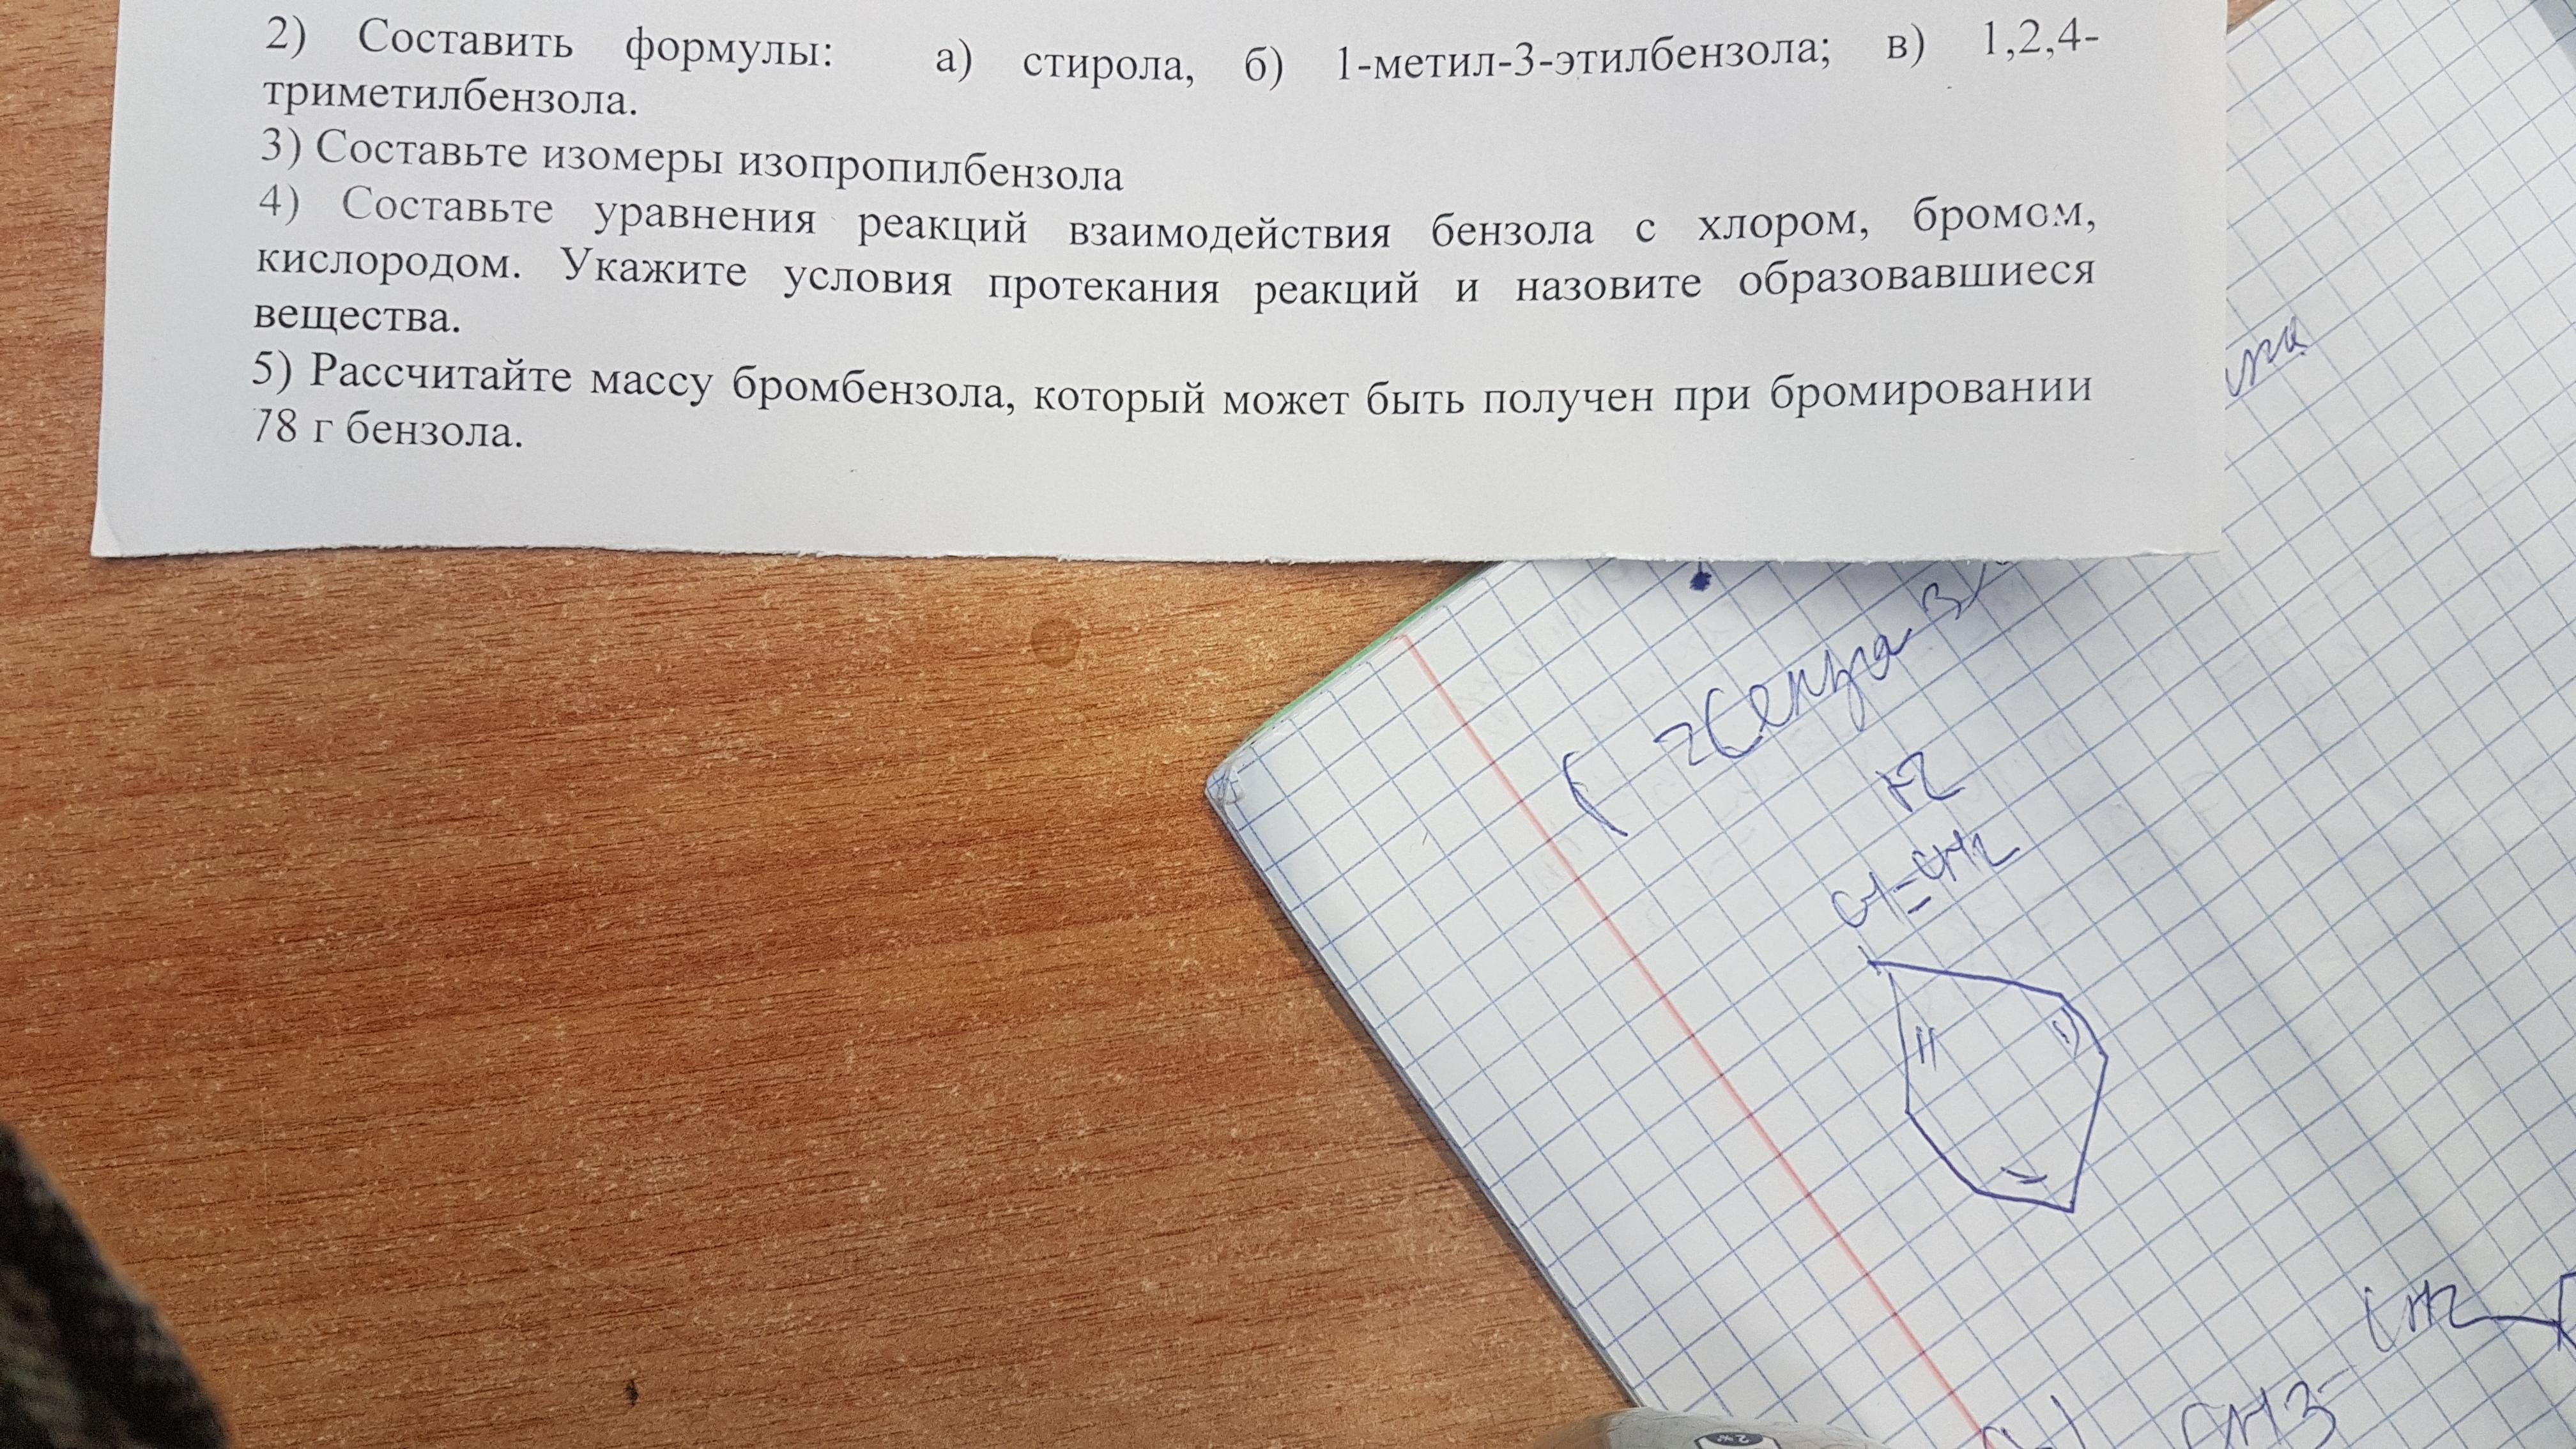 2) Составить формулы: а) стирола, б) 1-метил-3-этилбензола; в) 1,2,4-
триметилбензола.
3) Составьте изомеры изопропилбензола
4) Составьте уравнения реакций взаимодействия бензола с хлором, бромом,
кислородом. Укажите условия протекания реакций и назовите образовавшиеся
вещества.
5) Рассчитайте массу бромбензола, который может быть получен при бромировании
78 г бензола.
N2
CH=CH2
CH2
CH3-